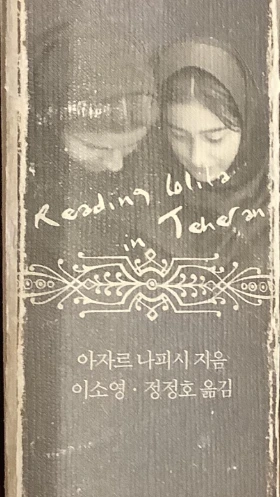 Reading Lolita
in Teheran
아자르 나피시 지음
이소영 · 정정호 옮김